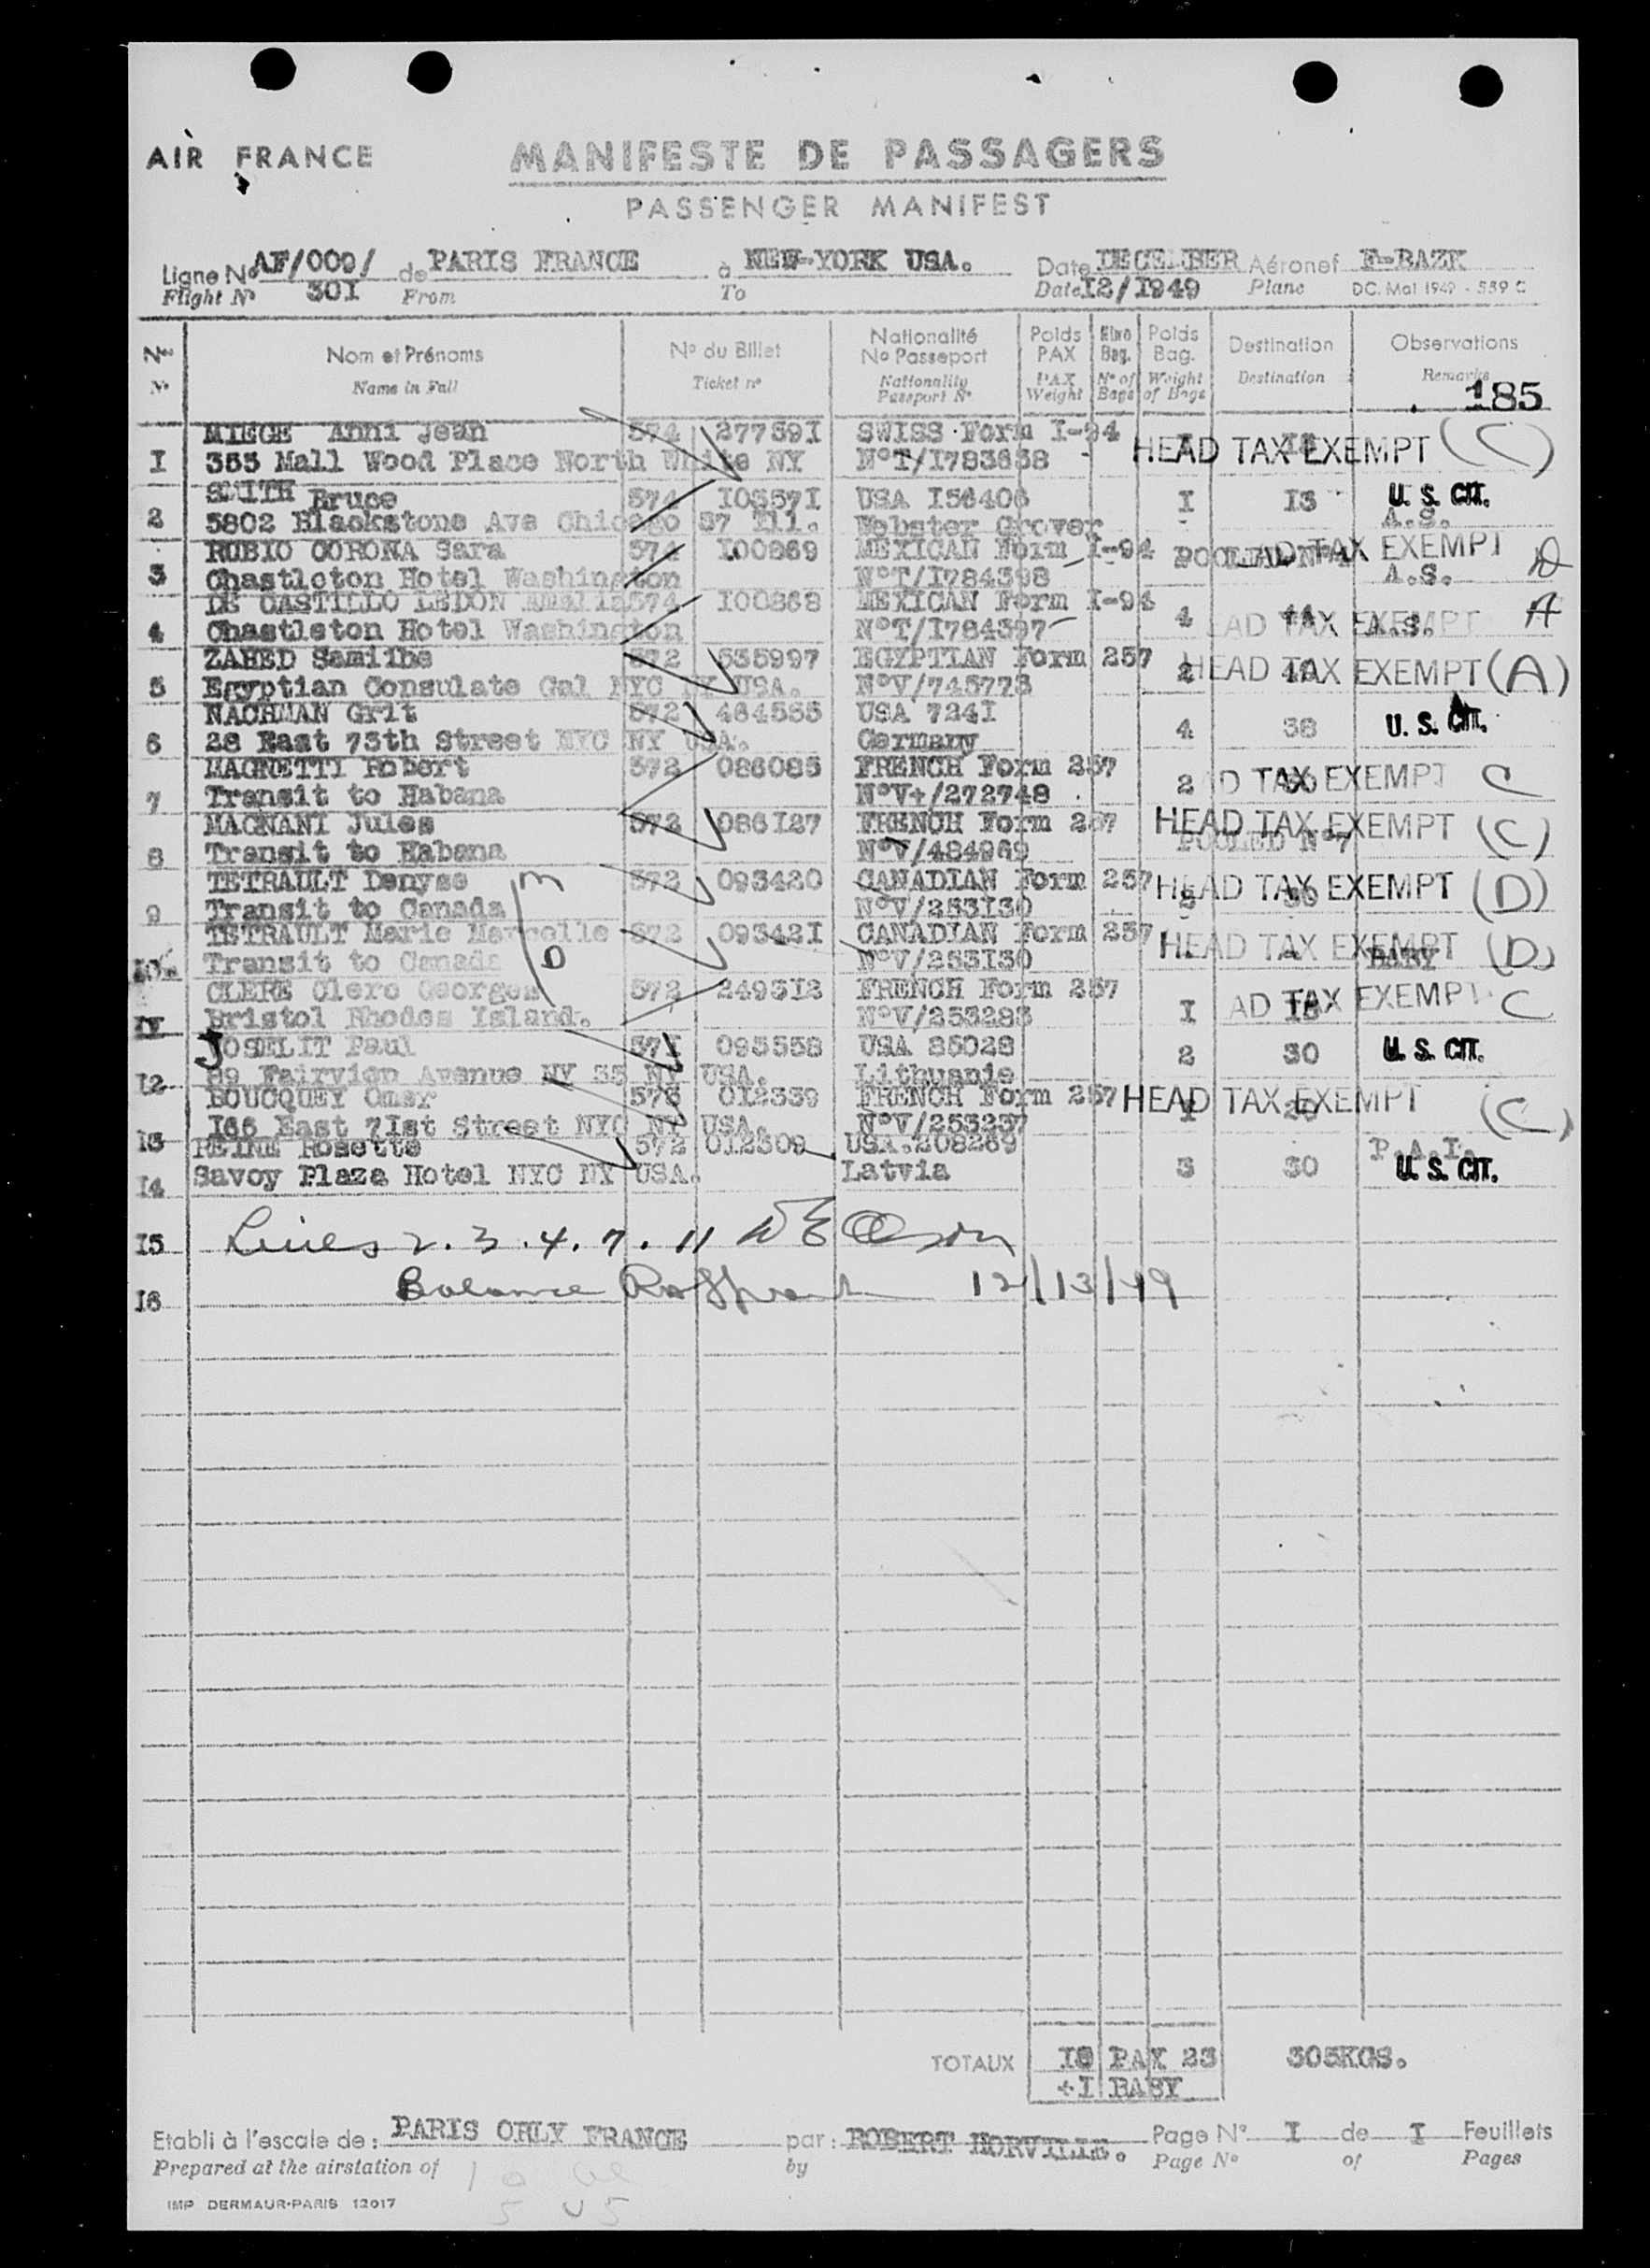 AIR FRANCE
MANIFESTE DE PASSAGERS
PASSENGER MANIFEST
Ligne No AF/009/ de PARIS FRANCE à NEW-YORK USA. Date DECEMBER Aéronef F-BAZK
Flight No 301 From To Date 12/1949 Plane DC. Mai 1949 - 539 C
Nos Nom et Prénoms No du Billet Nationalité No Passeport Poids PAX Poids Bag. Destination Observations
No Name in Full Ticket no Nationality Passport No PAX Weight No of Bags Weight of Bags Destination Remarks
185
MIEGE Anni Jean 574 277391 SWISS Form I-94
1 355 Mall Wood Place North White NY NoT/1783638 HEAD TAX EXEMPT (C)
SMITH Bruce 574 103571 USA 156406 1 13 U. S. CIT.
2 5802 Blackstone Ave Chicago 37 Ill. Webster Grover A.S.
RUBIO CORONA Sara 574 100869 MEXICAN Form I-94 AD TAX EXEMPT D
3 Chastleton Hotel Washington NoT/1784398 A.S.
DE CASTILLO LEDON Amalia 574 100868 MEXICAN Form I-94
4 Chastleton Hotel Washington NoT/1784397 4 AD TAX EXEMPT A.S. A
ZAHED Samilhe 572 535997 EGYPTIAN Form 257
5 Egyptian Consulate Gal NYC NY USA. NoV/745773 2 HEAD TAX EXEMPT (A)
NACHMAN Grit 572 464535 USA 7241
6 28 East 73th Street NYC NY USA. Germany 4 38 U. S. CIT.
MAGNETTI Robert 572 086085 FRENCH Form 257
7 Transit to Habana NoV+/272748 2 D TAX EXEMPT C
MAGNANI Jules 572 086127 FRENCH Form 257 HEAD TAX EXEMPT (C)
8 Transit to Habana NoV/484969 POOLED No7
TETRAULT Denyse m 572 093420 CANADIAN Form 257 HEAD TAX EXEMPT (D)
9 Transit to Canada NoV/253130
TETRAULT Marie Marcelle 572 093421 CANADIAN Form 257 HEAD TAX EXEMPT (D)
10 Transit to Canada D NoV/253130 BABY
CLERE Clerc Georges 572 249312 FRENCH Form 257
11 Bristol Rhodes Island. NoV/253283 1 AD TAX EXEMPT C
JOSELIT Paul 571 093558 USA 85028 2 30 U. S. CIT.
12 89 Fairview Avenue NY 35 NY USA. Lithuanie
BOUCQUEY Omer 573 012339 FRENCH Form 257 HEAD TAX EXEMPT (C)
13 166 East 71st Street NYC NY USA. NoV/253237
REINE Rosette 572 012309 USA.208269 P.A.I.
14 Savoy Plaza Hotel NYC NY USA. Latvia 3 30 U. S. CIT.
15 Lines 2. 3. 4. 7. 11
16 Balance 12/13/49
TOTAUX PAX 23 305KGS.
+1 BABY
Etabli à l'escale de: PARIS ORLY FRANCE par: ROBERT HORVILLE. Page No 1 de 1 Feuillets
Prepared at the airstation of by Page No of Pages
IMP DERMAUR-PARIS 12017